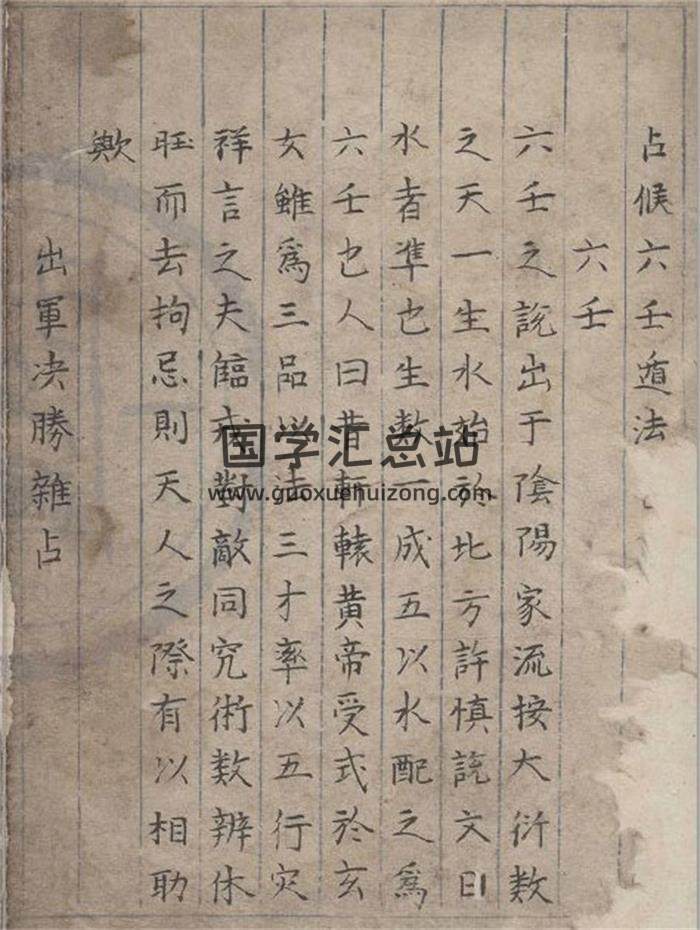 占候六壬遁法
六壬
六壬之說出于隂陽家流按大衍数
之天一生水始於北方許慎說文曰
水者凖也生数一成五以水配之爲
六壬也人曰昔軒轅黄帝受式於玄
女雖爲三品以法三才率以五行灾
祥言之夫臨戎對敵同究術数辨休
旺而去拘忌則天人之際有以相助
歟
出軍决勝雜占
国学汇总站
www.guoxuehuizong.com